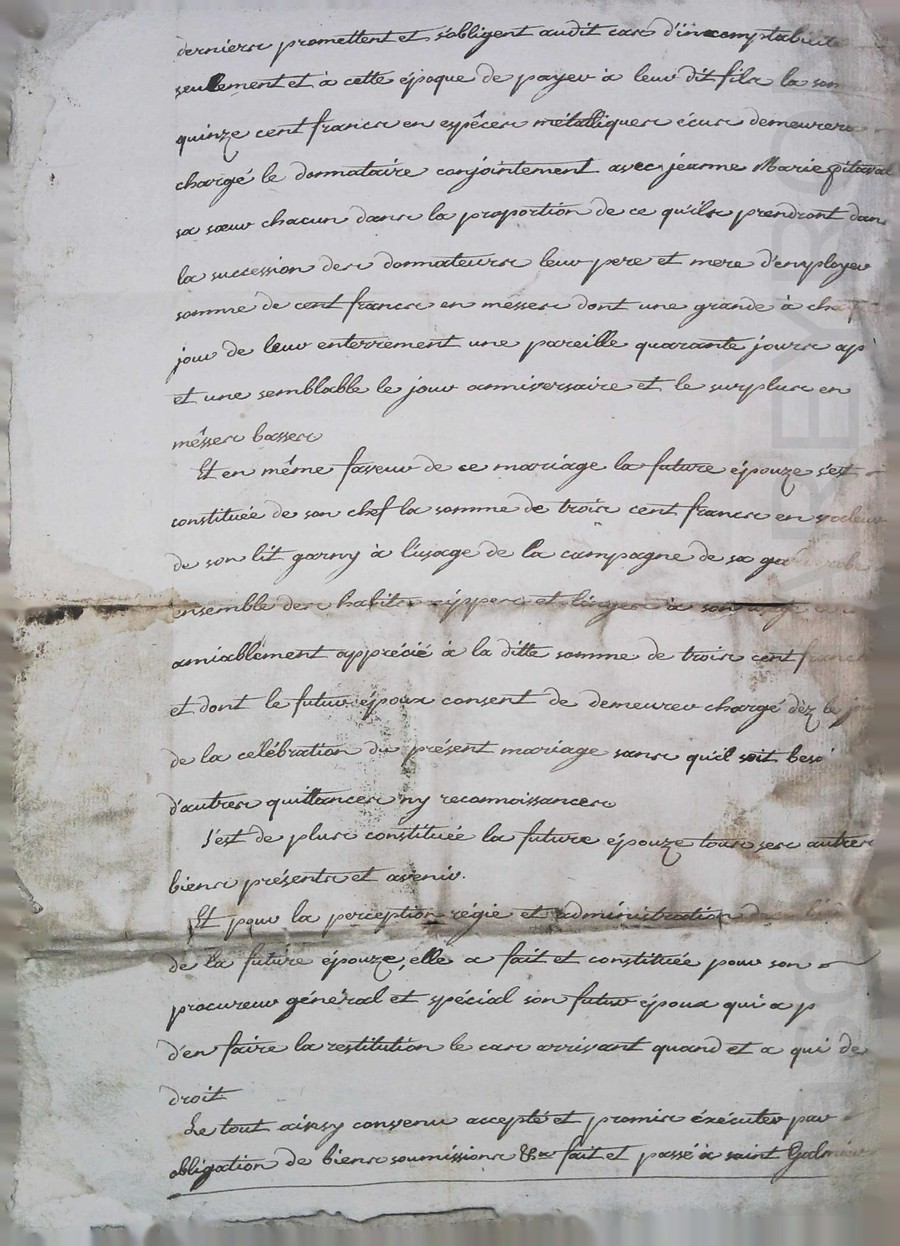 derniers promettent et s'obligent audit cas d'incomptabilité
seullement et a cette époque de payer a leur dit fils la som
quinze cent francs en espêces métalliques écus demeurera
chargé le donnataire conjointement avec jeanne Marie pitaval
sa sœur chacun dans la proportion de ce qu'ils prendront dans
la succession des donnateurs leur pere et mere d'employer
somme de cent francs en messes dont une grande à cha
jour de leur enterrement une pareille quarante jours ap
et une semblable le jour anniversaire et le surplus en
mêsses basses
Et en même faveur de ce mariage la future épouze s'est
constituée de son chef la somme de trois cent francs en valeur
de son lit garny à l'usage de la campagne de sa garderobe
ensemble des habits nippes et linges à son usage
amiablement apprécié à la ditte somme de trois cent francs
et dont le futur époux consent de demeurer chargé dèz le jou
de la celébration du présent mariage sans qu'il soit beso
d'autres quittances ny reconnoissances
S'est de plus constituée la future épouze tous ses autres
biens présents et avenir.
Et pour la perception régie et administration des bien
de la future épouze, elle a fait et constituée pour son
procureur général et spécial son futur époux qui a p
d'en faire la restitution le cas arrivant quand et a qui de
droit
Le tout ainsy convenu accepté et promis éxécuter par
obligation de biens soumissions &a fait et passé à saint Galmier
AREYRO